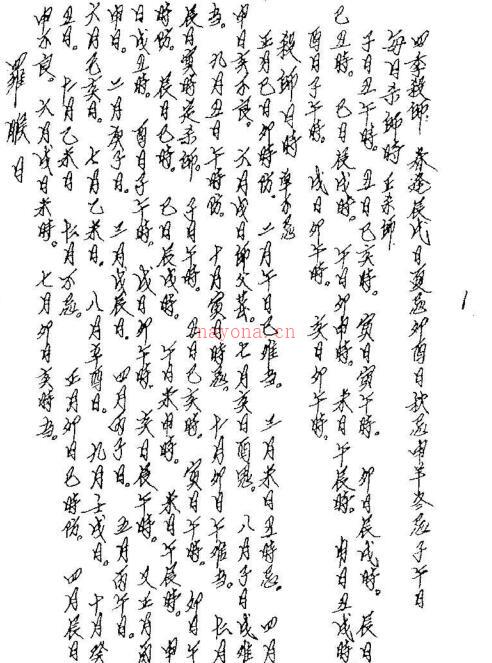 1
四季殺師 春逢辰戌日夏忌卯酉日秋忌申羊冬忌子午日
每日杀師時 正杀師
子日丑午時。 丑日巳亥時。 寅日寅午時。 卯日辰戌時。 辰日
巳丑時。 巳日辰戌時。 午日卯申時。 未日午辰時。 申日丑戌時
酉日子午時。 戌日卯午時。 亥日卯午時。
殺師日時 年月忌
正月巳日卯時防。 二月午日巳难当。 三月未日丑時忌。 四月
申日亥不良。 六月戌日師父 七月亥日酉 八月子日戌难
当。 九月丑日午時防。 十月寅日 時忌。 十月卯日午难当。 十二月
辰日寅時 杀師。 子日午時。 丑日巳亥時。 寅日午時。 卯日午
時防。 辰日巳時。 巳日辰戌時。 午日未申時。 未日午辰時。 申
日戌丑時。 酉日子午時。 戌日卯午時。 亥日辰午時。 又正月
申日。 二月庚子日。 三月戊辰日。 四月丙子日。 五月丙午日。
六月己亥日。 七月乙未日。 八月辛酉日。 九月壬戌日。 十月癸
丑日。 十一月己未日。 十二月不忌。 正月卯日巳時防。 四月辰日
申不良。 六月戌日未時。 七月卯日亥時当。
羅睺日
nayona.cn